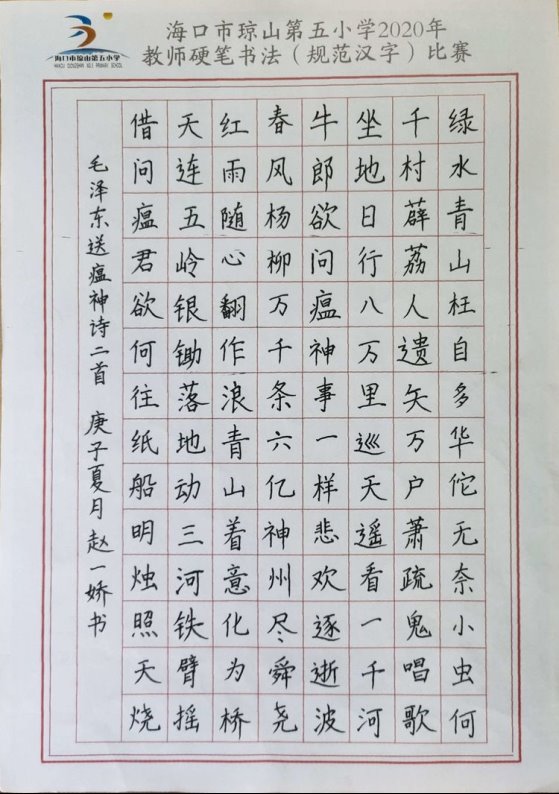 海口市琼山第五小学
海口市琼山第五小学2020年
教师硬笔书法（规范汉字）比赛
绿水青山枉自多华佗无奈小虫何
千村薜荔人遗矢万户萧疏鬼唱歌
坐地日行八万里巡天遥看一千河
牛郎欲问瘟神事一样悲欢逐逝波
春风杨柳万千条六亿神州尽舜尧
红雨随心翻作浪青山着意化为桥
天连五岭银锄落地动三河铁臂摇
借问瘟君欲何往纸船明烛照天烧
毛泽东送瘟神诗二首 庚子夏月赵一娇书